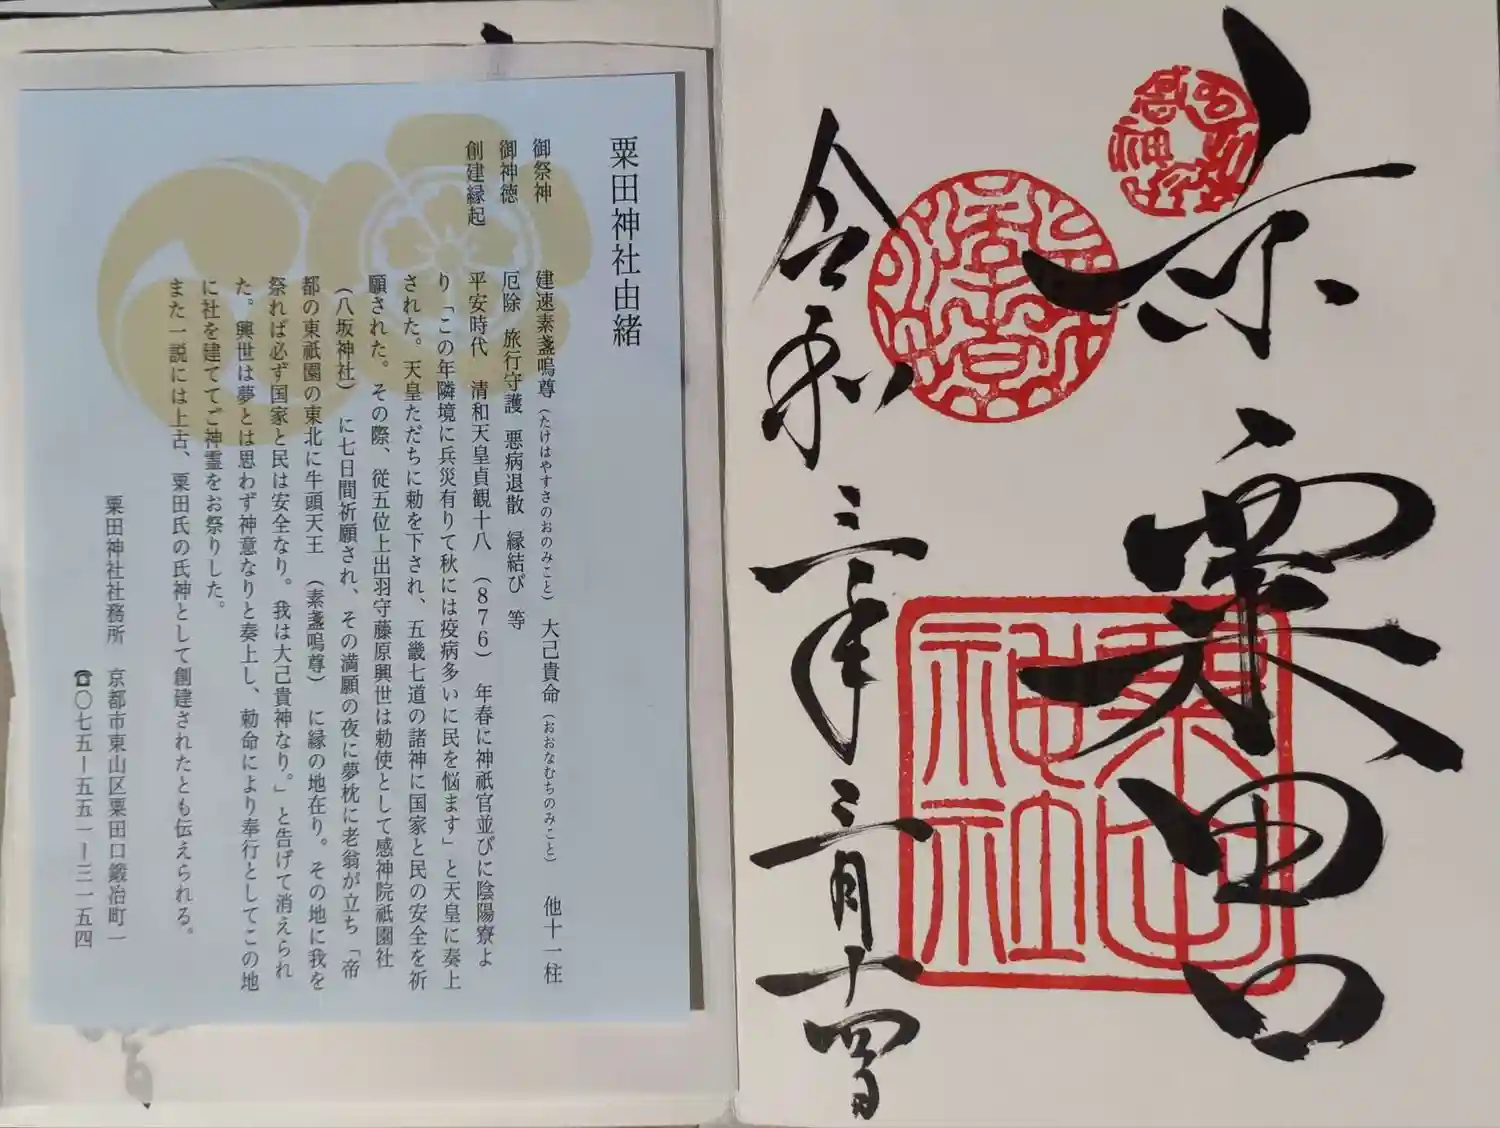 京 粟田口
令和三年三月十四日
粟田神社
粟田神社由緒
御祭神 建速素盞嗚尊（たけはやすさのおのみこと） 大己貴命（おおなむちのみこと） 他十一柱
御神徳 厄除 旅行守護 悪病退散 縁結び 等
創建縁起 平安時代 清和天皇貞観十八（８７６）年春に神祇官並びに陰陽寮よ
り「この年隣境に兵災有りて秋には疫病多いに民を悩ます」と天皇に奏上
された。天皇ただちに勅を下され、五畿七道の諸神に国家と民の安全を祈
願された。その際、従五位上出羽守藤原興世は勅使として感神院祇園社
（八坂神社）に七日間祈願され、その満願の夜に夢枕に老翁が立ち「帝
都の東祇園の東北に牛頭天王（素盞嗚尊）に縁の地在り。その地に我を
祭れば必ず国家と民は安全なり。我は大己貴神なり。」と告げて消えられ
た。興世は夢とは思わず神意なりと奏上し、勅命により奉行としてこの地
に社を建ててご神霊をお祭りした。
また一説には上古、粟田氏の氏神として創建されたとも伝えられる。
粟田神社社務所 京都市東山区粟田口鍛冶町一
☎〇七五ー五五一ー三一五四